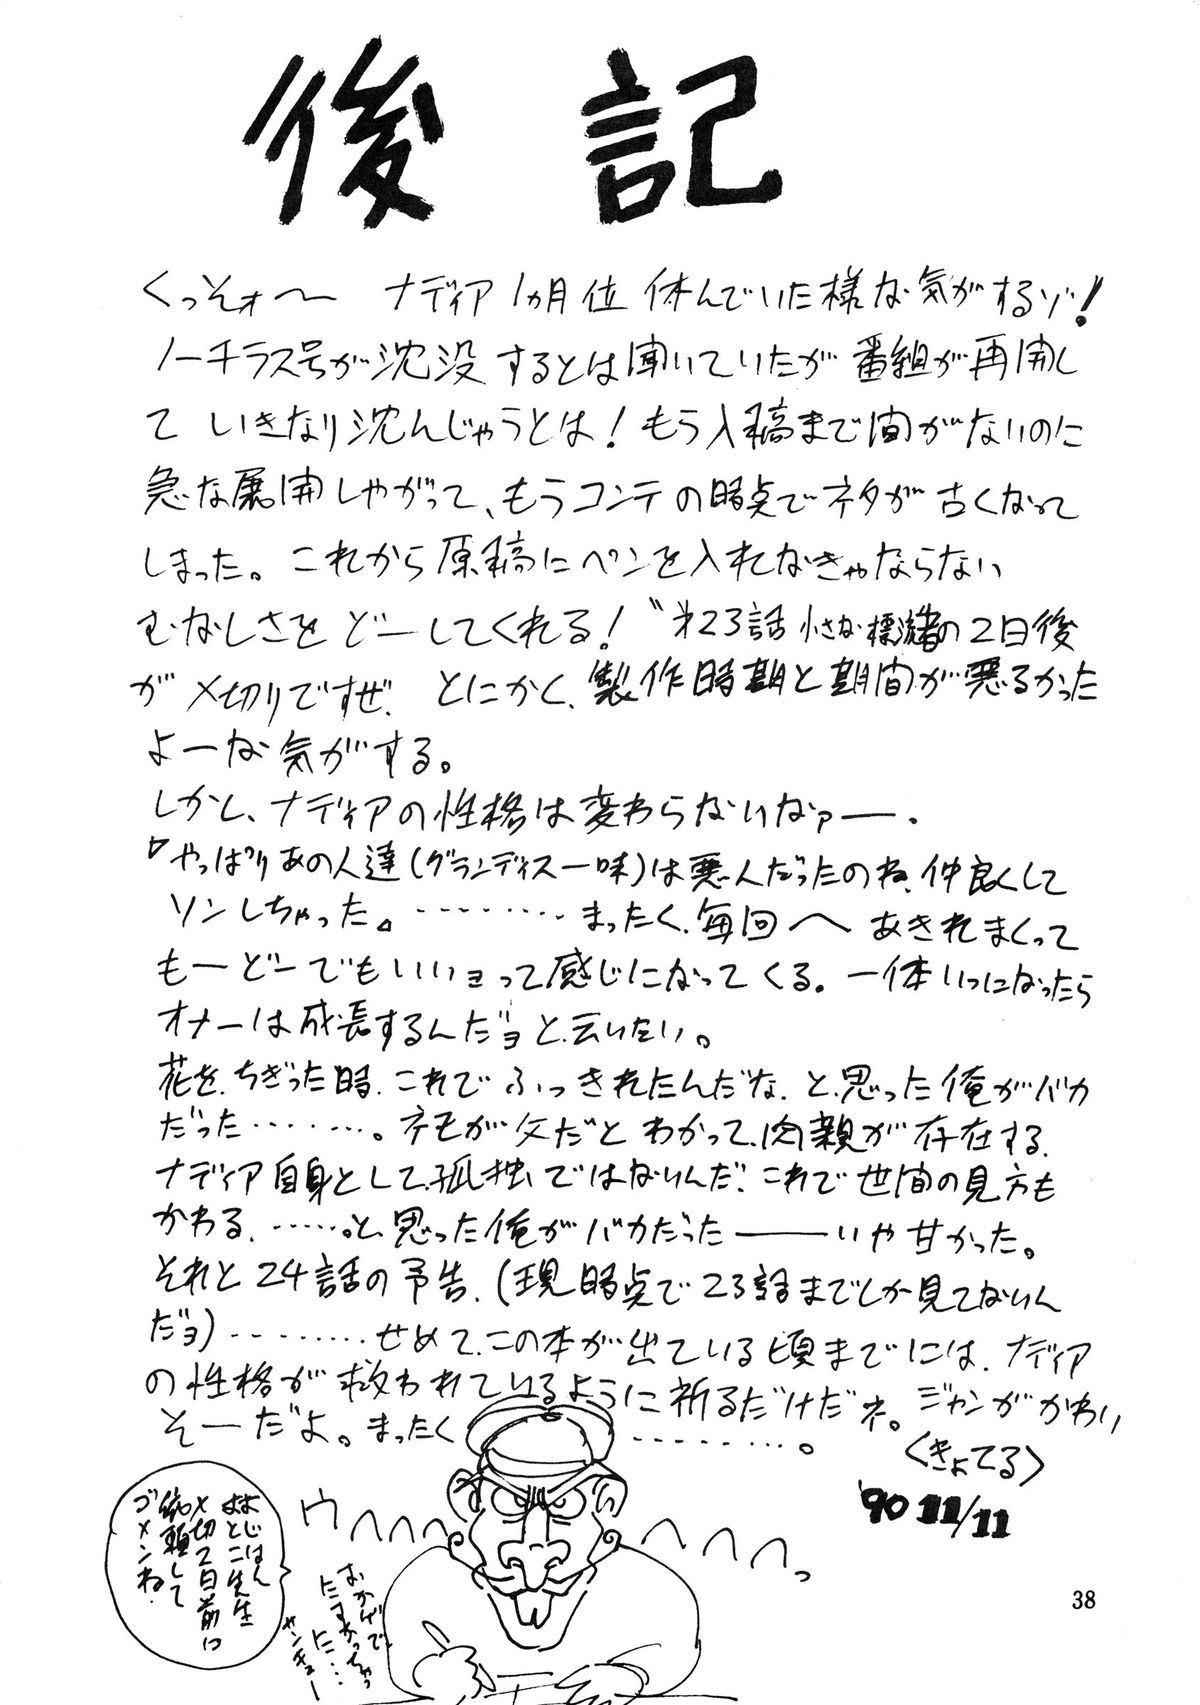 後記
くっそォ～ ナディア1ヵ月位休んでいた様な気がするゾ!
ノーチラス号が沈没するとは聞いていたが番組が再開し
ていきなり沈んじゃうとは!もう入稿まで間がないのに
急な展開しやがって、もうコンテの時点でネタが古くなって
しまった。これから原稿にペンを入れなきゃならない
むなしさをどーしてくれる!〝第23話 小さな漂流者の2日後
が〆切りですぜ.とにかく、製作時期と期間が悪るかった
よーな気がする。
しかし、ナディアの性格は変わらないなァー.
「やっぱりあの人達(グランディス一味)は悪人だったのね、仲良くして
ソンしちゃった。」………まったく、毎回〜あきれまくって
もーどーでもいいョって感じになってくる。一体いつになったら
オナーは成長するんだョと、云いたい。
花を、ちぎった時、これでふっきれたんだな、と、思った俺がバカ
だった………。ネモが父だとわかって、肉親が存在する、
ナディア自身として、孤独ではないんだ、これで世間の見方も
かわる、……。と、思った俺がバカだった――いや甘かった。
それと24話の予告、(現時点で23話までしか見てないん
だョ)………せめて、この本が出ている頃までには、ナディア
の性格が救われているように祈るだけだネ。ジャンがかわい
そーだよ。まったく………。
<きよてる>
'90 11/11
ウヘヘヘヘヘヘヘっ
先生
〆切2日前に
依頼して
ゴメンね.
おかげで、
たすかっちゃっ
た…
サンキュー
38